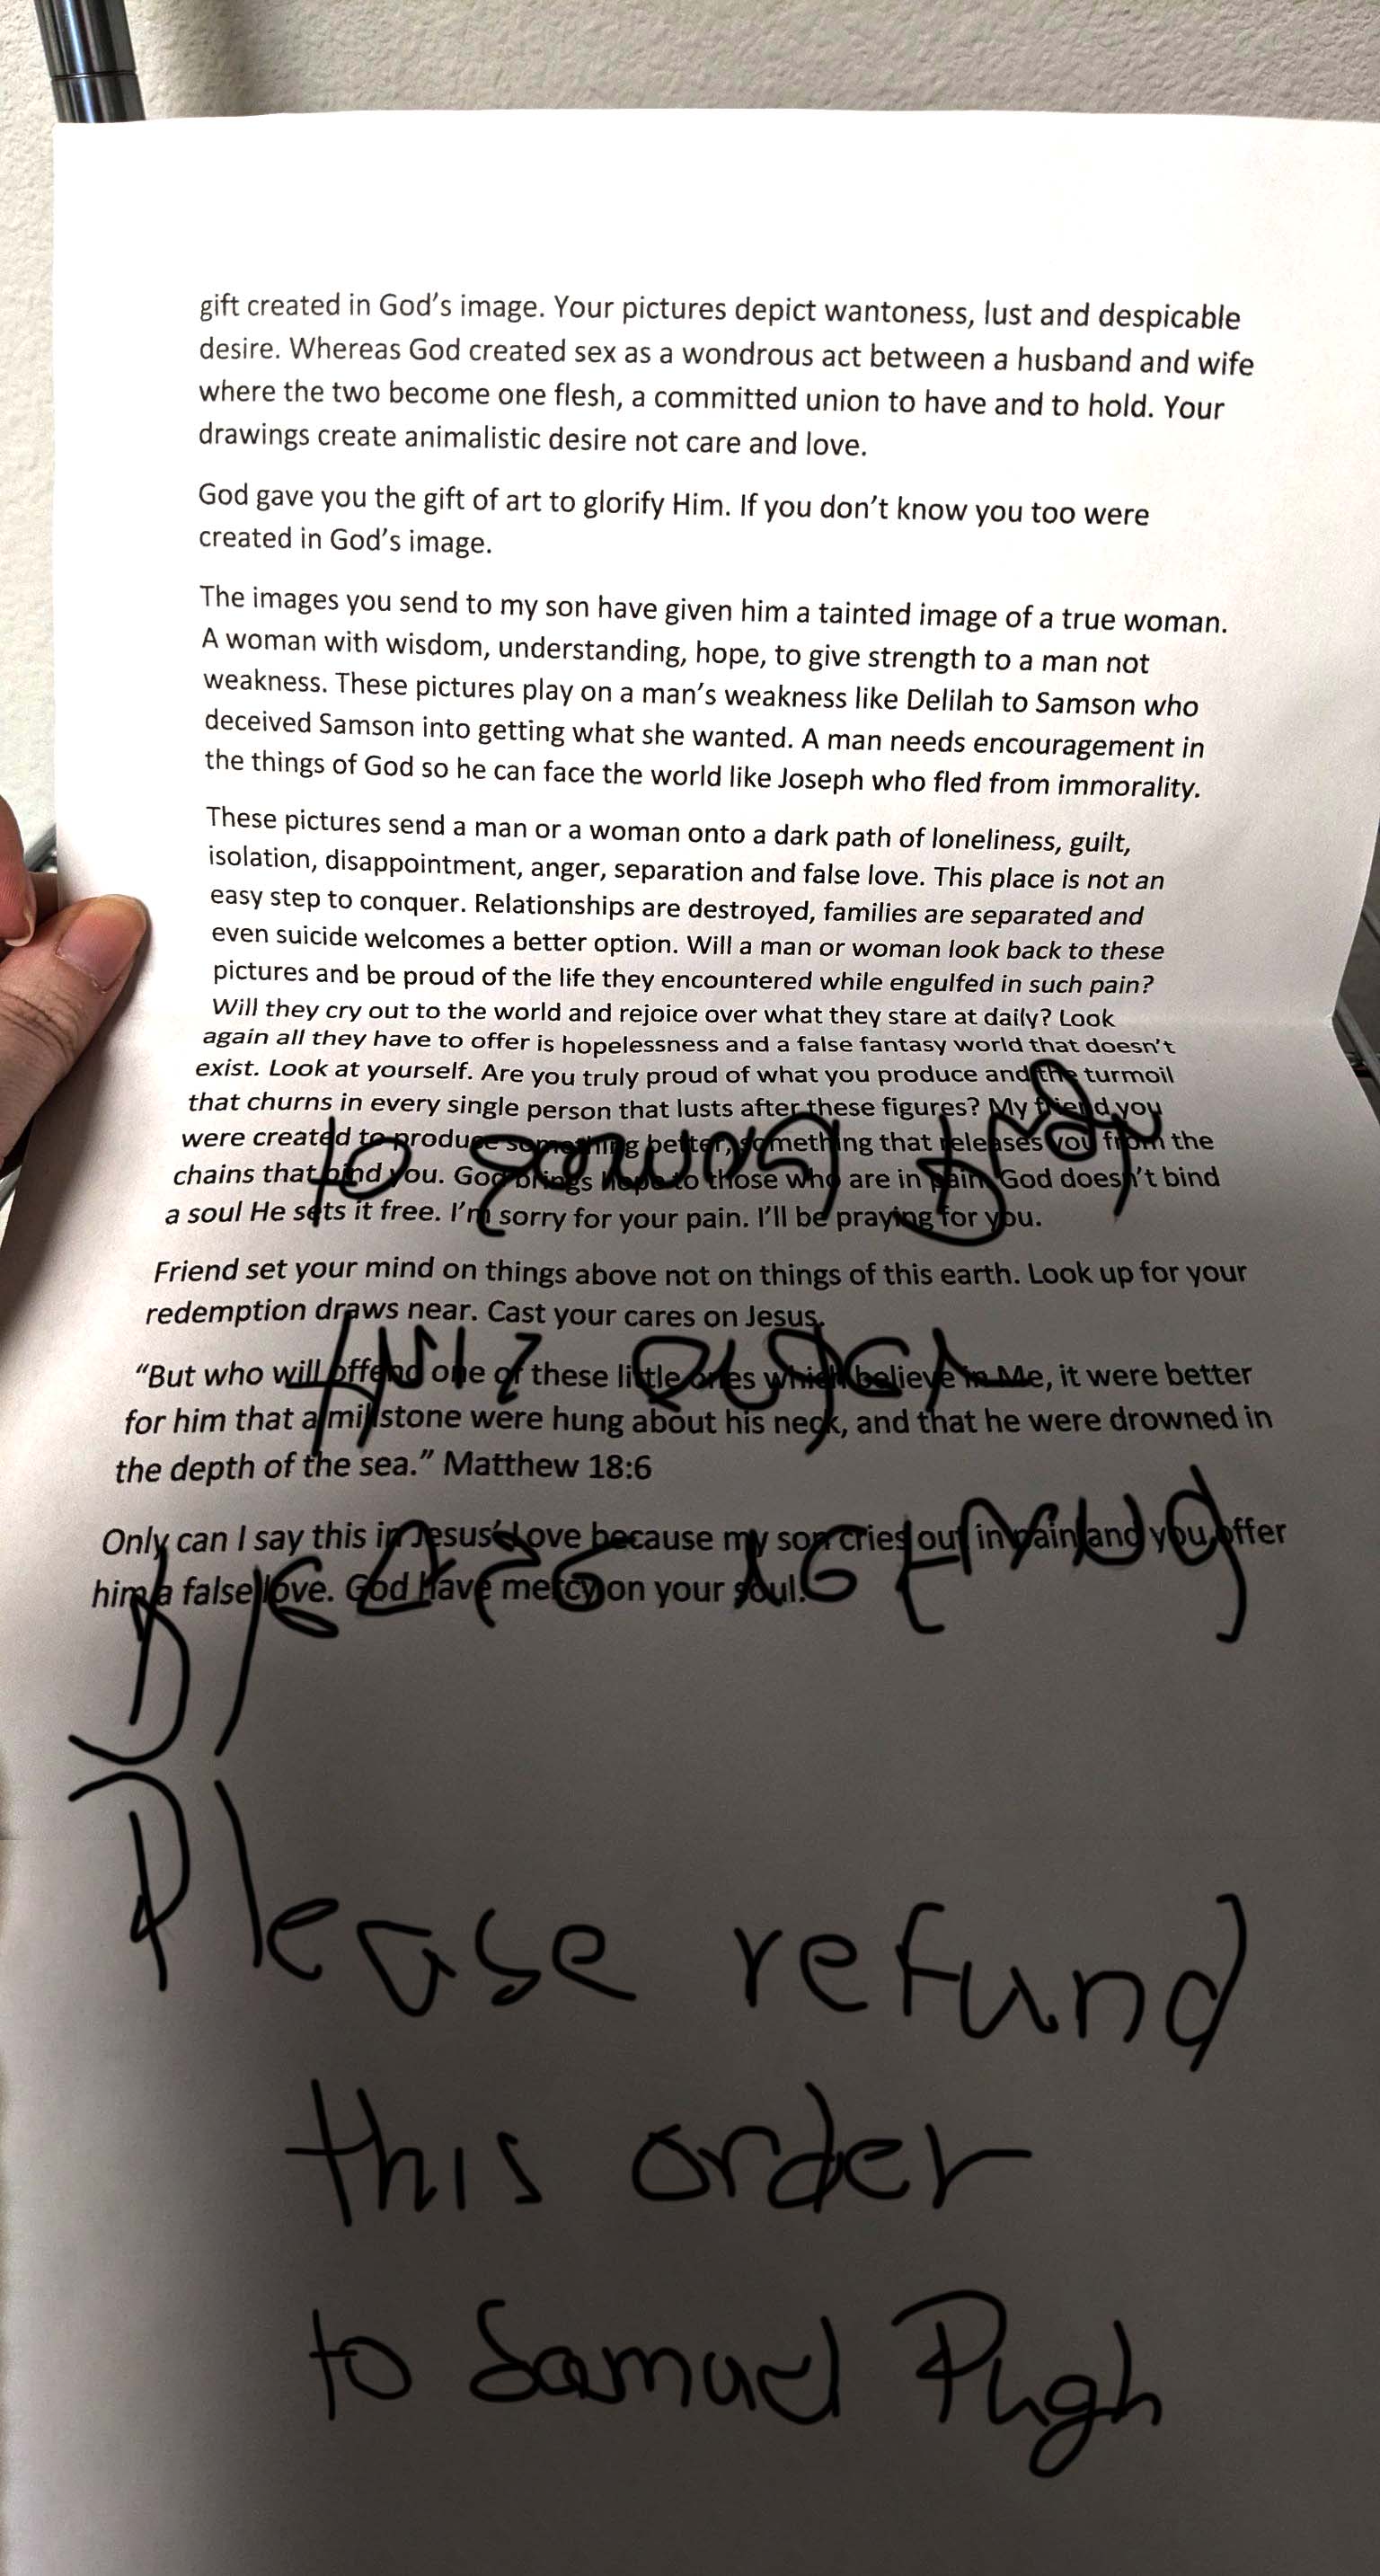 gift created in God's image. Your pictures depict wantoness, lust and despicable
desire. Whereas God created sex as a wondrous act between a husband and wife
where the two become one flesh, a committed union to have and to hold. Your
drawings create animalistic desire not care and love.
God gave you the gift of art to glorify Him. If you don't know you too were
created in God's image.
The images you send to my son have given him a tainted image of a true woman.
A woman with wisdom, understanding, hope, to give strength to a man not
weakness. These pictures play on a man's weakness like Delilah to Samson who
deceived Samson into getting what she wanted. A man needs encouragement in
the things of God so he can face the world like Joseph who fled from immorality.
These pictures send a man or a woman onto a dark path of loneliness, guilt,
isolation, disappointment, anger, separation and false love. This place is not an
easy step to conquer. Relationships are destroyed, families are separated and
even suicide welcomes a better option. Will a man or woman look back to these
pictures and be proud of the life they encountered while engulfed in such pain?
Will they cry out to the world and rejoice over what they stare at daily? Look
again all they have to offer is hopelessness and a false fantasy world that doesn't
exist. Look at yourself. Are you truly proud of what you produce and the turmoil
that churns in every single person that lusts after these figures? My friend you
were created to produce something better, something that releases you from the
chains that bind you. God brings hope to those who are in pain. God doesn't bind
a soul He sets it free. I'm sorry for your pain. I'll be praying for you.
Friend set your mind on things above not on things of this earth. Look up for your
redemption draws near. Cast your cares on Jesus.
"But who will offend one of these little ones which believe in Me, it were better
for him that a millstone were hung about his neck, and that he were drowned in
the depth of the sea." Matthew 18:6
Only can I say this in Jesus' Love because my son cries out in pain and you offer
him a false love. God Have mercy on your soul.
Please refund
this order
to Samuel Pugh